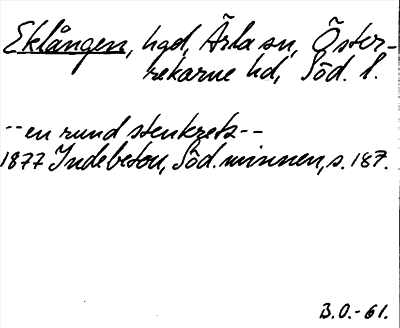 Eklången, hgd, Ärla sn, Öster-
rekarne hd, Söd. l.
-- en rund stenkrets --
1877 Indebetou, Söd. minnen, s. 187.
B.O. - 61.